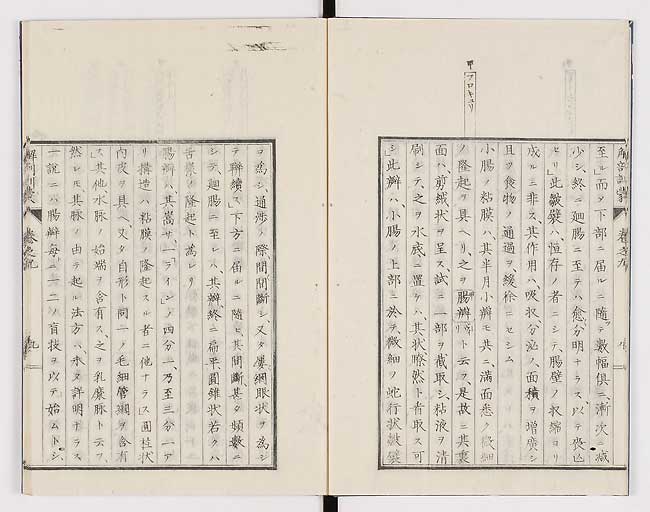 至ル」而ヲ下部ニ届ルニ隨テ數幅俱ニ漸次ニ減
少シ、終ニ廻腸ニ至テハ愈分明ナラス以テ喪亡
セリ」此皺襞ハ恒存ノ者ニシテ、腸壁ノ収縮ヨリ
成ルニ非ス、其作用ハ、吸収分泌ノ面積ヲ增廣シ
且ツ食物ノ通過ヲ緩徐ニセシム
小腸ノ粘膜ハ、其半月小瓣モ共ニ、滿面悉ク微細
ノ隆起ヲ具ヘリ、之ヲ腸瓣ト云フ是故ニ其裏
面ハ剪絨狀ヲ呈ス、試ニ一部ヲ截取シ、粘液ヲ清
刷シテ、之ヲ水底ニ置ケハ、其狀瞭然ト看取ス可
シ」此瓣ハ、小腸ノ上部ニ於テ微細ノ蛇行狀皺襞
甲
フロキュリ
解剖訓蒙
卷之九
ヲ為シ、通渉ノ際、間間斷シ、又タ僂網眼狀ヲ為シ
テ聯續ス、下方ニ届ルニ隨ヒ其間斷甚タ頻數ニ
シテ、廻腸ニ至レハ、其瓣終ニ扁平圓錐狀若クハ
舌崇ノ隆起ト為レリ
腸瓣ハ、其嵩サ、一「ライン」ノ四分一乃至三分一ア
リ構造ハ粘膜ノ隆起スル者ニ他ナラス圓柱狀
內皮ヲ具ヘ、又タ自形ト同一ノ毛細管網ヲ含有
ス其他水脉ノ始端ヲ含有ス、之ヲ乳糜脉ト云フ、
然レモ其脉ノ由テ起ル法方ハ、未タ詳明ナラス
一說ニハ腸瓣每ニ一二ノ盲枝ヲ以テ始ムトシ、
解剖訓蒙
卷之九
九